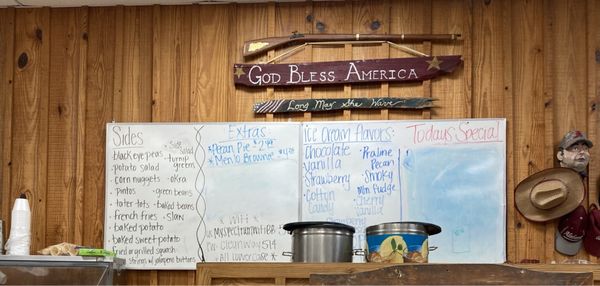 God Bless America
Long May She Wave
Sides
black eye peas
potato salad
corn nuggets
pintos
tater tots
french fries
baked potato
baked sweet potato
fried or grilled squash
Side Salad
turnip greens
okra
green beans
baked beans
slaw
Extras
Pecan Pie
* Wifi *
All lowercase
Ice Cream Flavors
Chocolate
Vanilla
Strawberry
Cotton Candy
Praline Pecan
Smoky
Mtn fudge
Cherry Vanilla
Today's Special